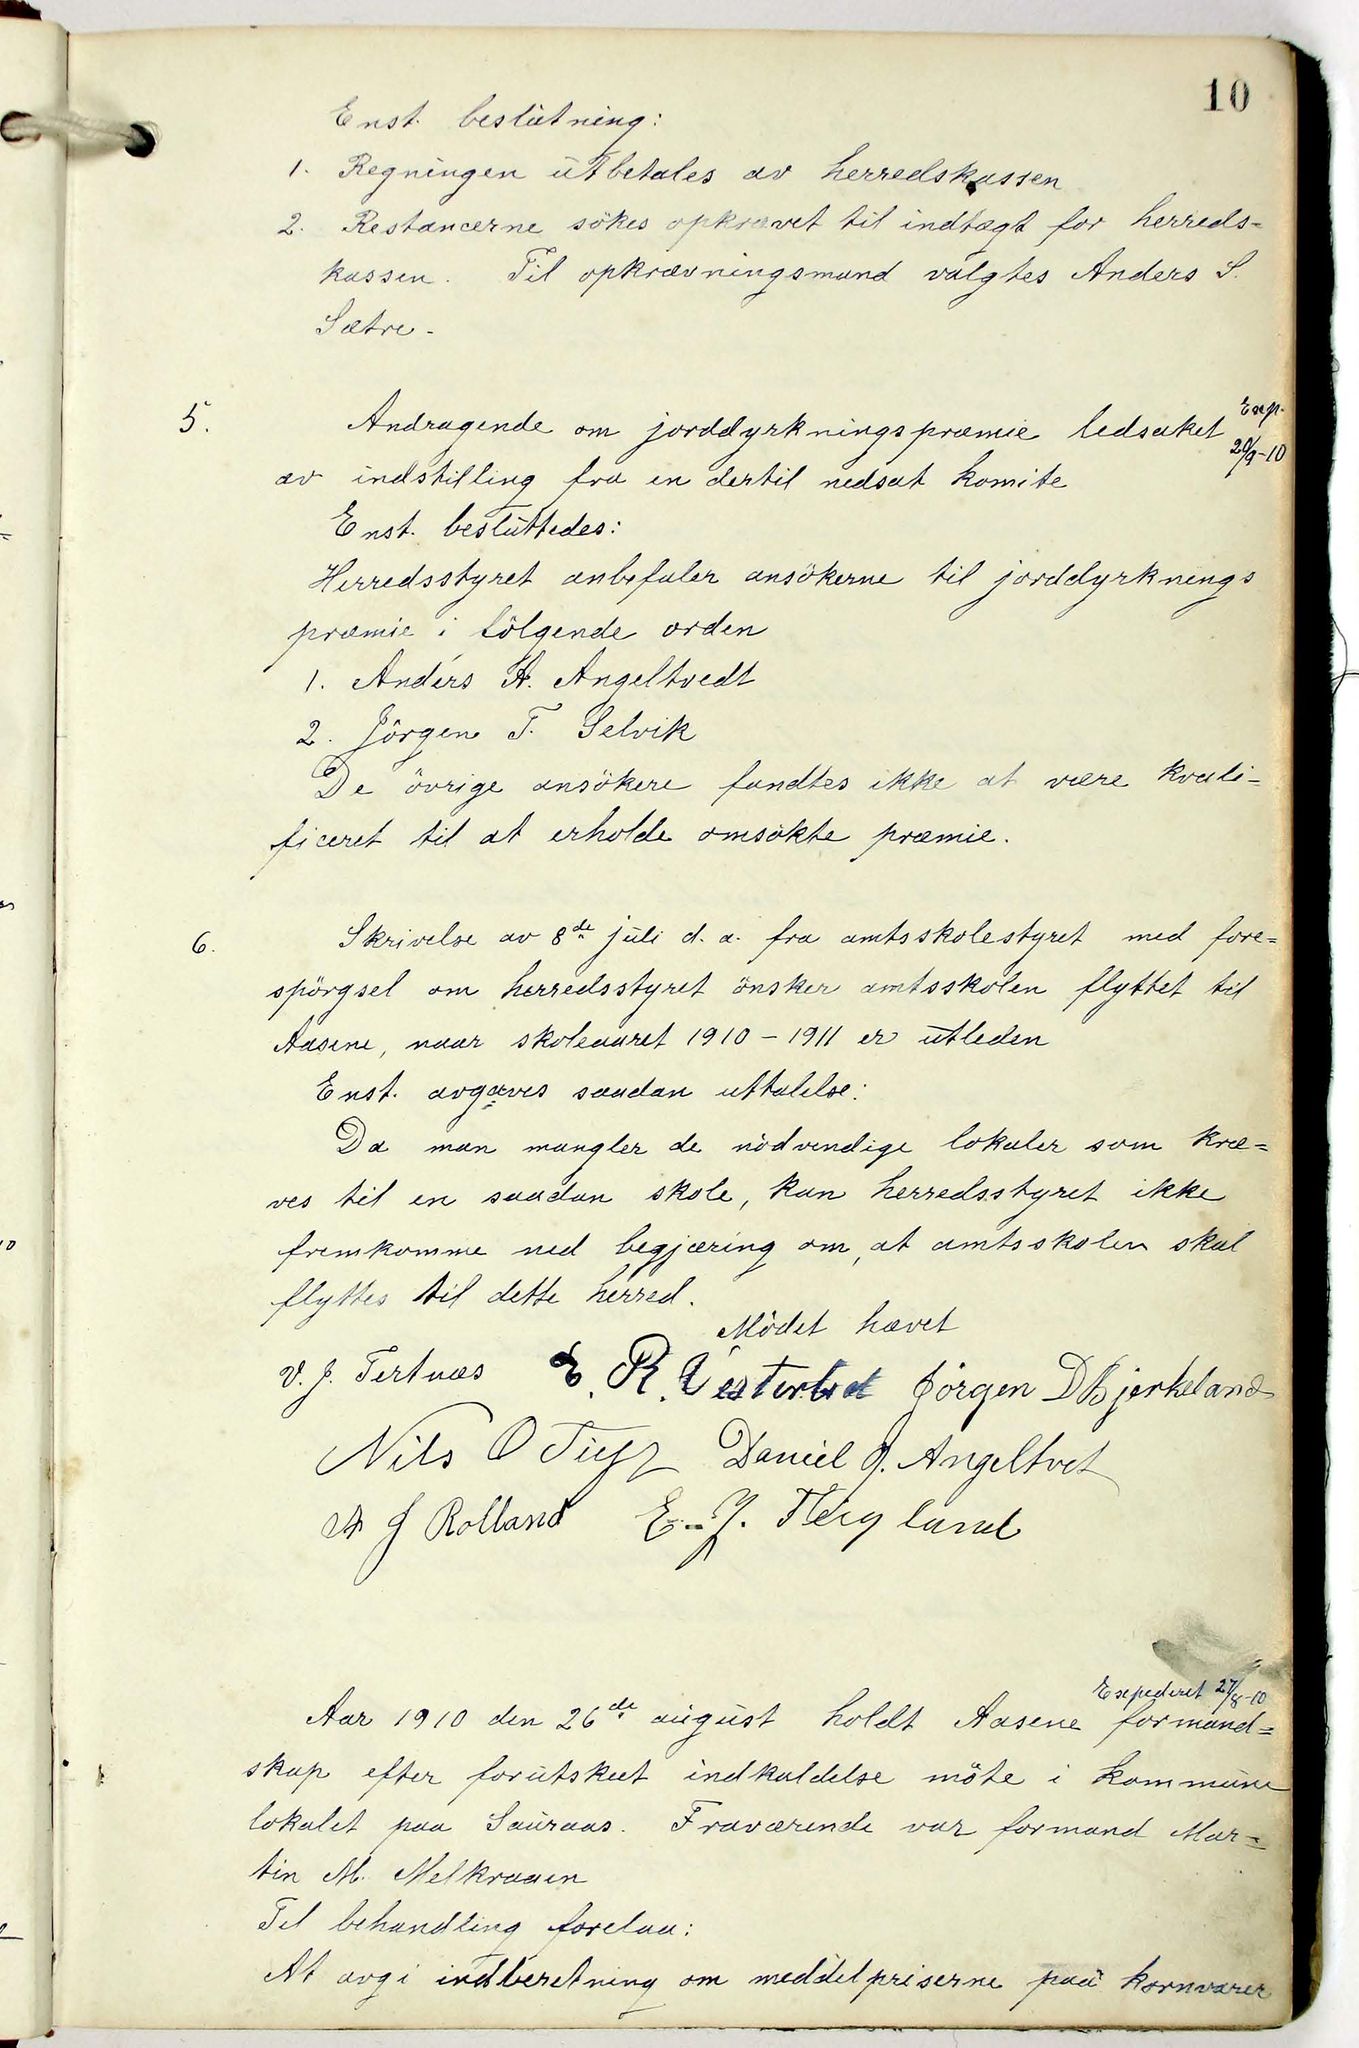 10
Enst. beslutning:
1. Regningen utbetales av herredskassen
2. Restancerne søkes opkrævet til indtægt for herreds=
kassen. Til opkrævningsmand valgtes Anders S.
Sætre.
5. Andragende om jorddyrkningspræmie ledsaket
Exp. 20/9-10
av indstilling fra en dertil nedsat komite
Enst. besluttedes:
Herredsstyret anbefaler ansökerne til jorddyrknings
præmie i følgende orden
1. Anders A. Angeltvedt
2. Jörgen T. Selvik
De övrige ansökere fandtes ikke at være kvali=
ficeret til at erholde omsökte præmie.
6. Skrivelse av 8de juli d. a. fra amtsskolestyret med fore=
spörgsel om herredsstyret önsker amtsskolen flyttet til
Aasene, naar skoleaaret 1910-1911 er utleden
Enst. avgaves saadan uttalelse:
Da man mangler de nödvendige lokaler som kræ=
ves til en saadan skole, kan herredsstyret ikke
fremkomme med begjæring om, at amtsskolen skal
flyttes til dette herred.
Mödet hævet
V. J. Tertnæs E. R. Vesterbø Jörgen D Bjerkeland
Nils O Daniel J. Angeltvet
A J Rolland E. J. Hergland
Expederet 27/8-10
Aar 1910 den 26de august holdt Aasene formand=
skap efter forutskeet indkaldelse möte i kommune
lokalet paa Sauraas. Fraværende var formand Mar=
tin M. Melkraaen
Til behandling forelaa:
At avgi indberetning om meddelpriserne paa kornvarer